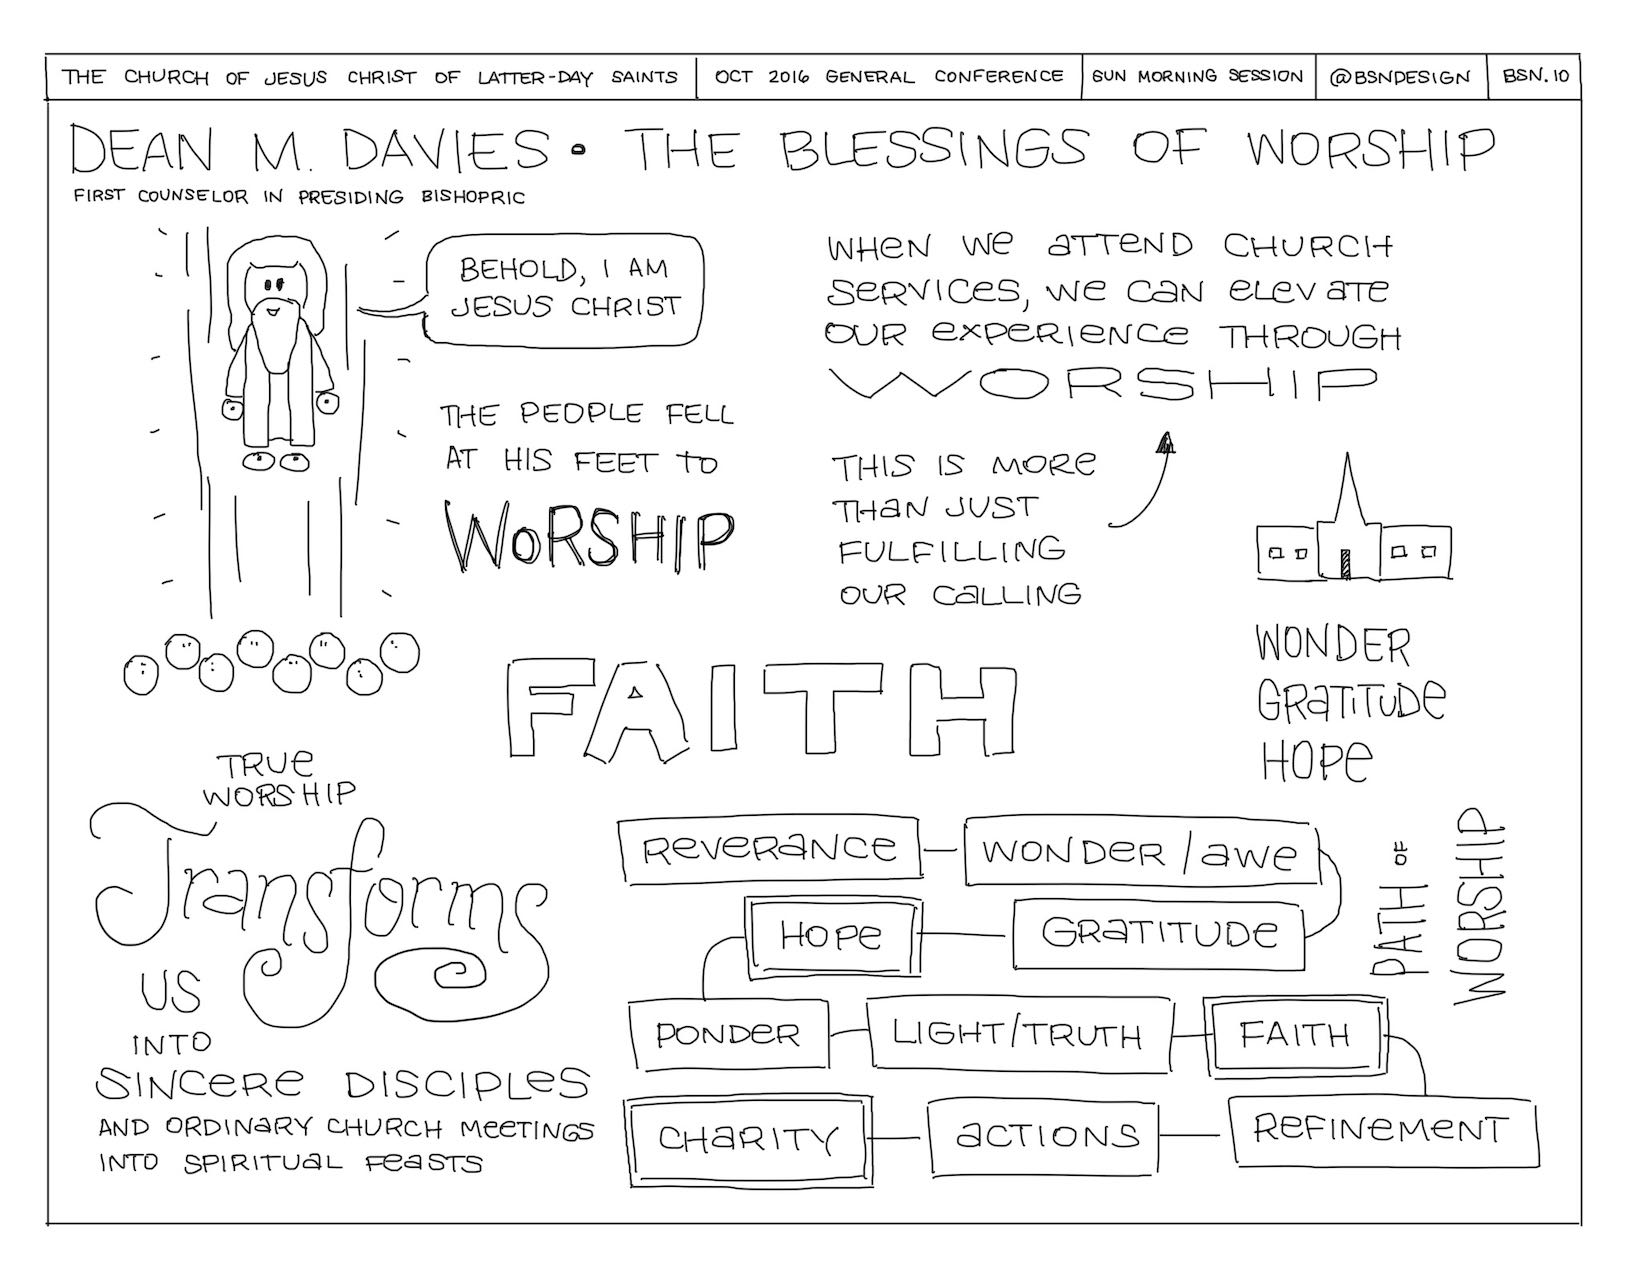 THE CHURCH OF JESUS CHRIST OF LATTER-DAY SAINTS
OCT 2016 GENERAL CONFERENCE
SUN MORNING SESSION
@BSNDESIGN
BSN.IO
DEAN M. DAVIES • THE BLESSINGS OF WORSHIP
FIRST COUNSELOR IN PRESIDING BISHOPRIC
BEHOLD, I AM
JESUS CHRIST
THE PEOPLE FELL
AT HIS FEET TO
WORSHIP
WHEN WE ATTEND CHURCH
SERVICES, WE CAN ELEVATE
OUR EXPERIENCE THROUGH
WORSHIP
THIS IS MORE
THAN JUST
FULFILLING
OUR CALLING
WONDER
GRATITUDE
HOPE
FAITH
TRUE
WORSHIP
Transforms
US
INTO
SINCERE DISCIPLES
AND ORDINARY CHURCH MEETINGS
INTO SPIRITUAL FEASTS
REVERANCE
WONDER/AWE
HOPE
GRATITUDE
PONDER
LIGHT/TRUTH
FAITH
CHARITY
ACTIONS
REFINEMENT
PATH OF
WORSHIP